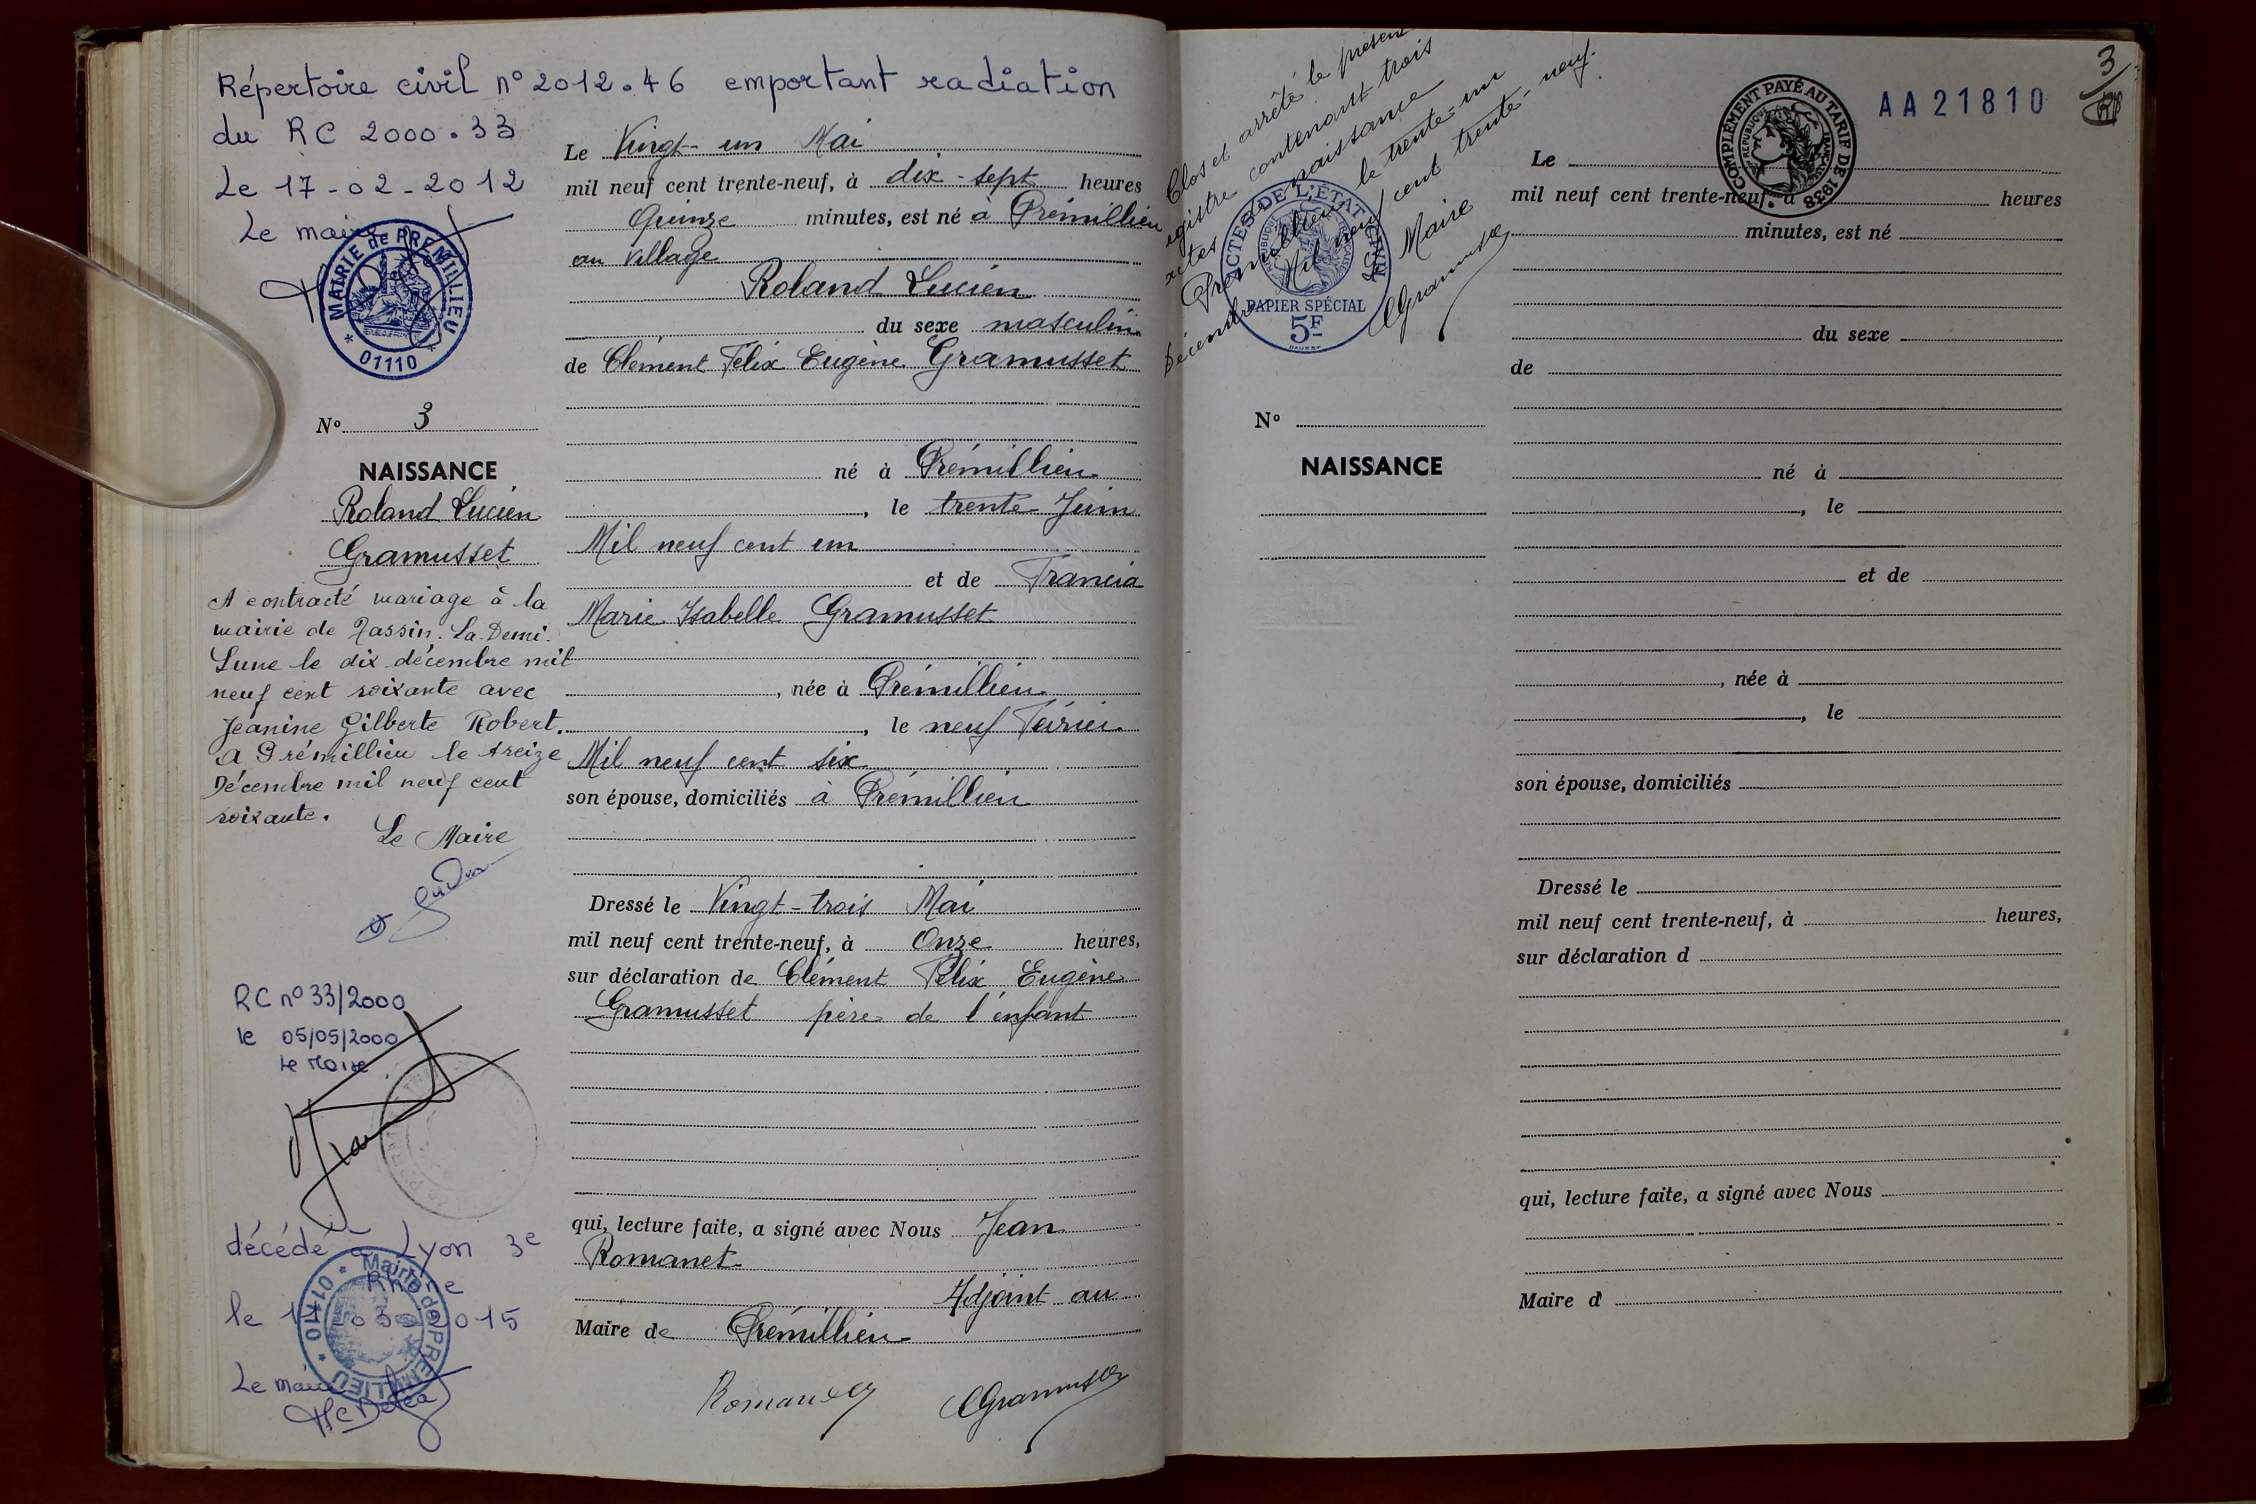 Répertoire civil n° 2012.46 emportant radiation
du RC 2000.33
Le 17-02-2012
Le maire
MAIRIE de PRÉMILLIEU
* 01110 *
N° 3
NAISSANCE
Roland Lucien
Gramusset
A contracté mariage à la
mairie de Tassin-La-Demi-
Lune le dix décembre mil
neuf cent soixante avec
Jeanine Gilberte Robert.
A Prémillieu le treize
Décembre mil neuf cent
soixante.
Le Maire
RC n° 33/2000
le 05/05/2000
Le Maire
décédé à Lyon 3e
Rhône
le 2015
Mairie de PREMILLIEU
* 01110 *
Le maire
Le Vingt-un Mai
mil neuf cent trente-neuf, à dix-sept heures
Quinze minutes, est né à Prémillieu
au Village
Roland Lucien
du sexe masculin
de Clément Félix Eugène Gramusset
né à Prémillieu
, le trente Juin
Mil neuf cent un
et de Francia
Marie Isabelle Gramusset
, née à Prémillieu
, le neuf Février
Mil neuf cent six
son épouse, domiciliés à Prémillieu
Dressé le Vingt-trois Mai
mil neuf cent trente-neuf, à Onze heures,
sur déclaration de Clément Félix Eugène
Gramusset père de l'enfant
qui, lecture faite, a signé avec Nous Jean
Romanet
Adjoint au
Maire de Prémillieu
Romanet CGramusset
Clos et arrêté le présent
registre contenant trois
actes de naissance
Prémillieu le trente-un
Décembre Mil neuf cent trente-neuf.
Maire
CGramusset
ACTES DE L'ÉTAT CIVIL
RÉPUBLIQUE FRANÇAISE
PAPIER SPÉCIAL
5F
COMPLÉMENT PAYÉ AU TARIF DE 1938
RÉPUBLIQUE FRANÇAISE
AA21810
3
N°
NAISSANCE
Le
mil neuf cent trente-neuf, à heures
minutes, est né
du sexe
de
né à
, le
et de
, née à
, le
son épouse, domiciliés
Dressé le
mil neuf cent trente-neuf, à heures,
sur déclaration d
qui, lecture faite, a signé avec Nous
Maire d